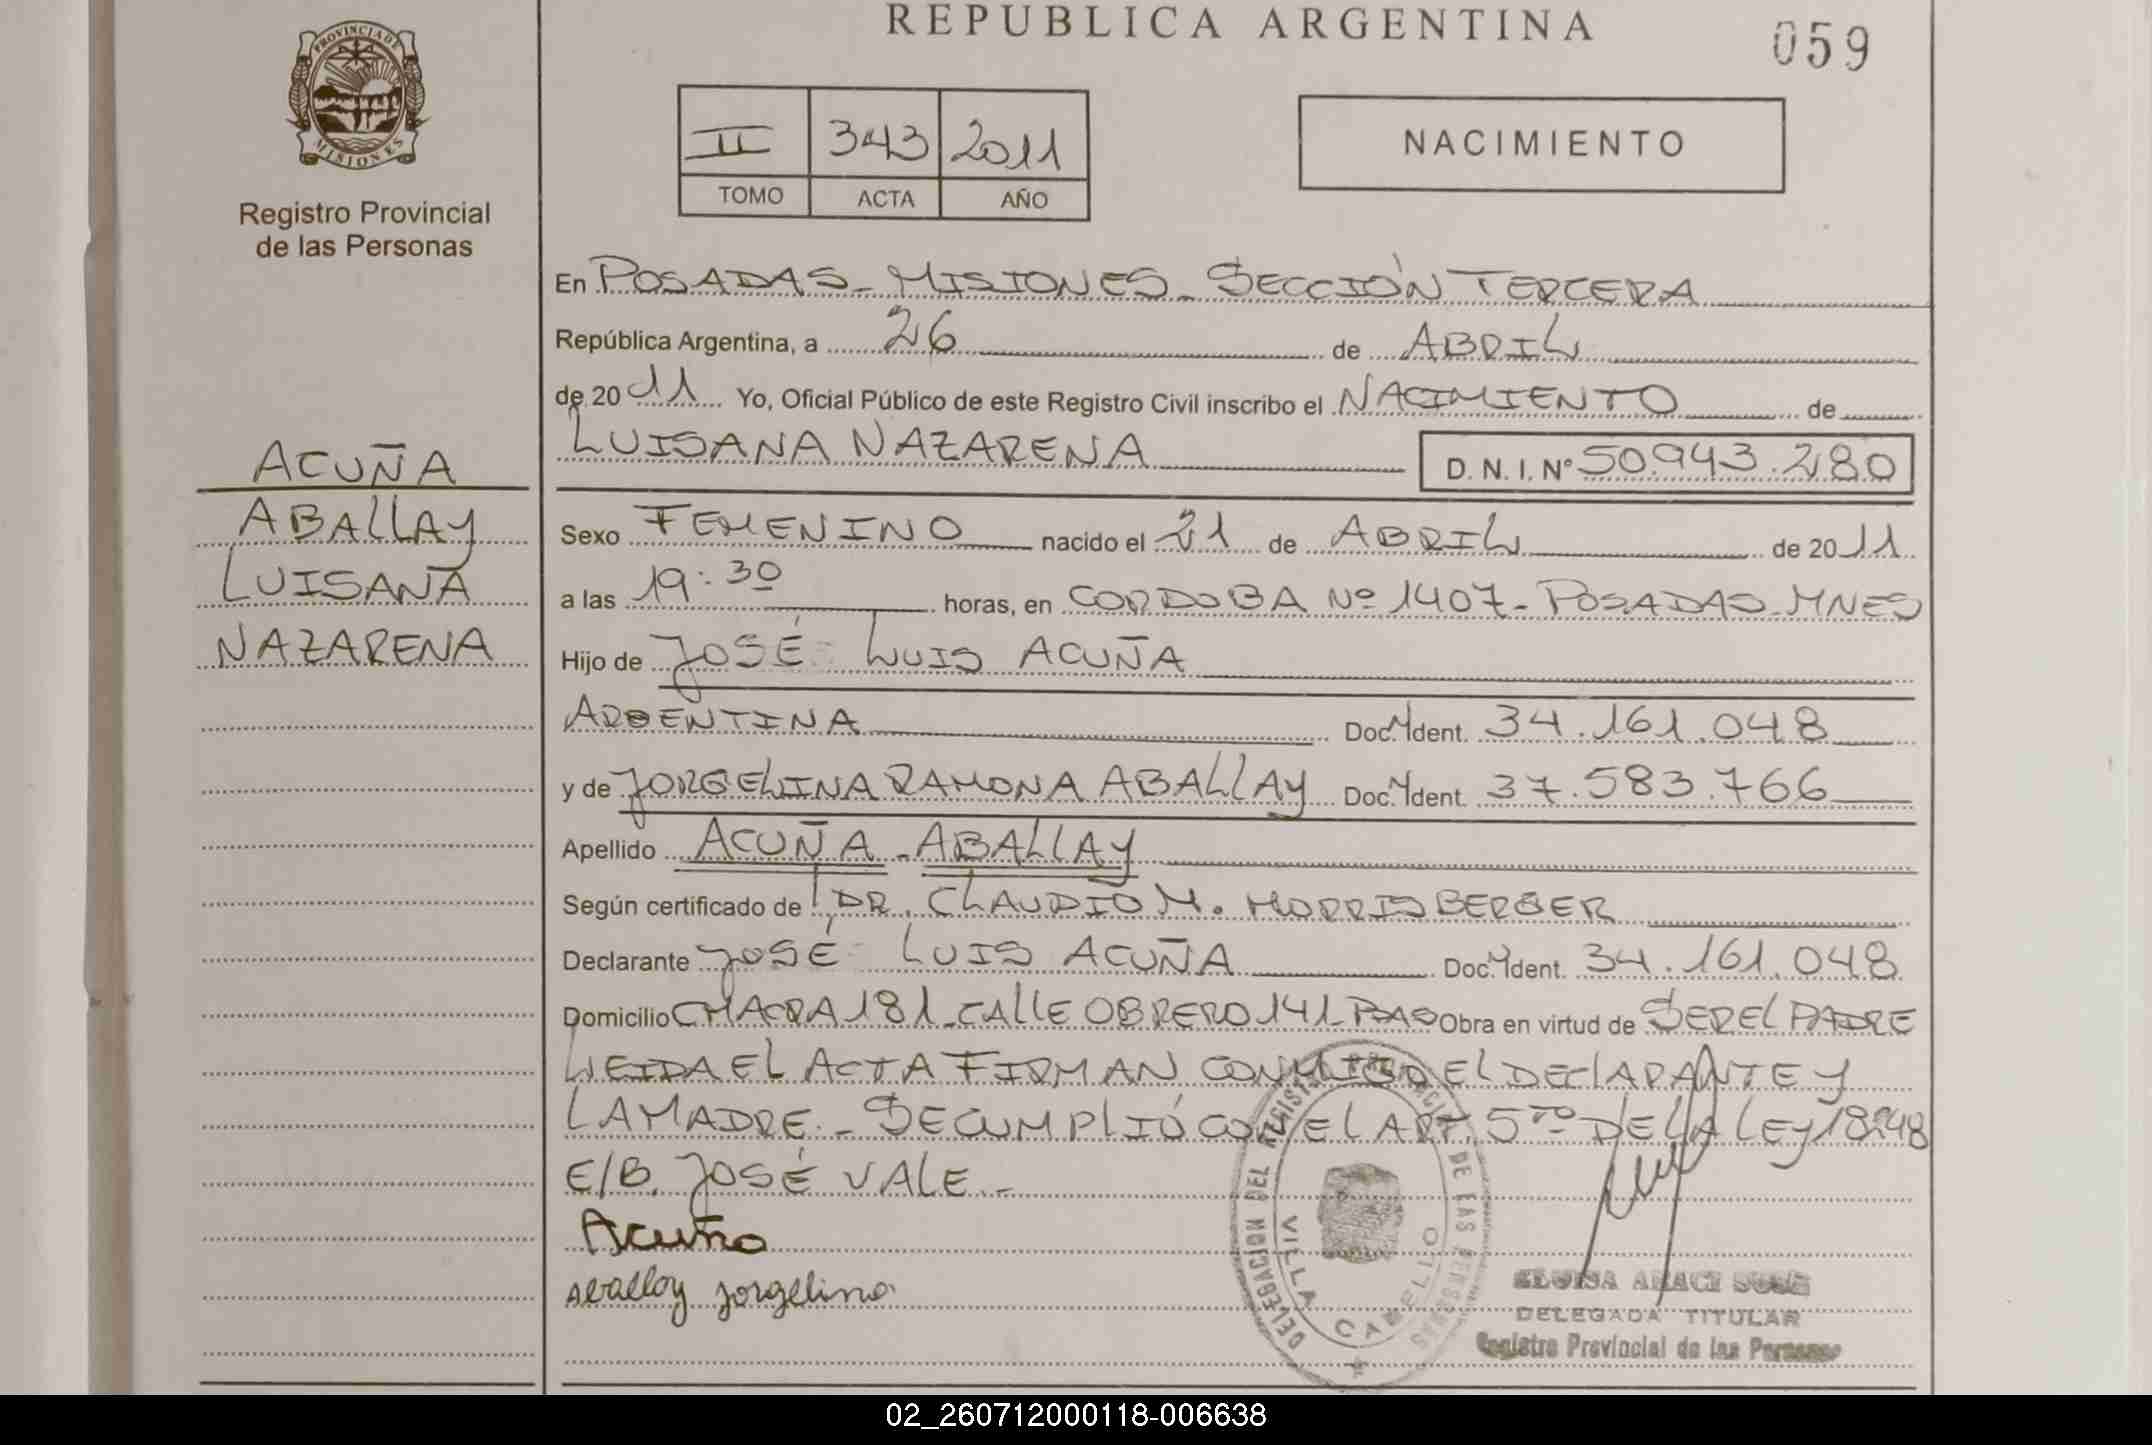 REPUBLICA ARGENTINA
059
PROVINCIA DE
MISIONES
Registro Provincial
de las Personas
II 343 2011
TOMO ACTA AÑO
NACIMIENTO
En POSADAS - MISIONES - SECCIÓN TERCERA
República Argentina, a 26 de ABRIL
de 2011 Yo, Oficial Público de este Registro Civil inscribo el NACIMIENTO de
LUISANA NAZARENA D. N. I. Nº 50.943.280
ACUÑA
ABALLAY
LUISANA
NAZARENA
Sexo FEMENINO nacido el 21 de ABRIL de 2011
a las 19:30 horas, en CORDOBA Nº 1407 - POSADAS - MNES
Hijo de JOSÉ LUIS ACUÑA
ARGENTINA Doc. Ident. 34.161.048
y de JORGELINA RAMONA ABALLAY Doc. Ident. 37.583.766
Apellido ACUÑA - ABALLAY
Según certificado de DR. CLAUDIO M. MORRISBERGER
Declarante JOSÉ LUIS ACUÑA Doc. Ident. 34.161.048
Domicilio CHACRA 181 - CALLE OBRERO 141 - PDAS Obra en virtud de SER EL PADRE
LEIDA EL ACTA FIRMAN CONMIGO EL DECLARANTE Y
LA MADRE. - SE CUMPLIÓ CON EL ART. 5TO DE LA LEY 18248
E/B. JOSÉ VALE. -
Acuña
Aballay Jorgelina
DELEGACION DEL REGISTRO PROVINCIAL DE LAS PERSONAS
VILLA CABELLO
DELEGADA TITULAR
Registro Provincial de las Personas
02_260712000118-006638